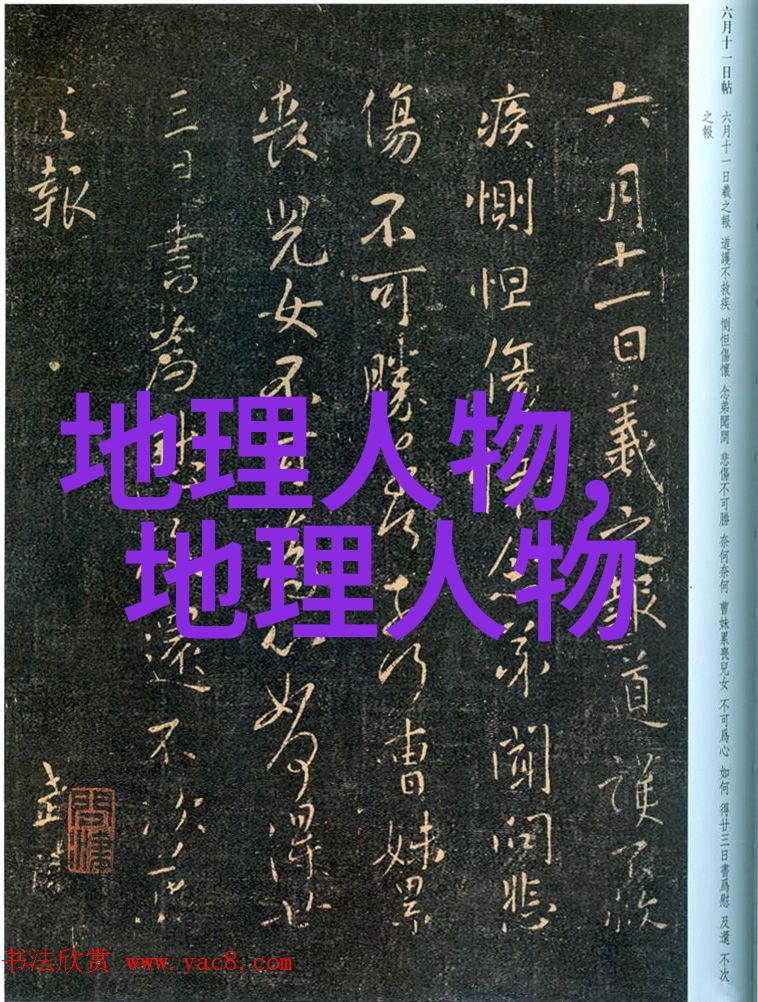 六月十一日帖
六月十一日羲之報 道護不救疾 惻怛傷懷 念弟聞問 悲傷不可勝 奈何奈何 曹妹累喪兒女 不可爲心 如何 得廿三日書爲慰 及還 不次
之報
六月十一日羲之報道護不救
疾惻怛傷懷念弟聞問悲
傷不可勝奈何奈何曹妹累
喪兒女不可爲心如何得廿
三日書爲慰及還不次羲
之報
地理人物,
地理人物
书法欣赏 www.yac8.com